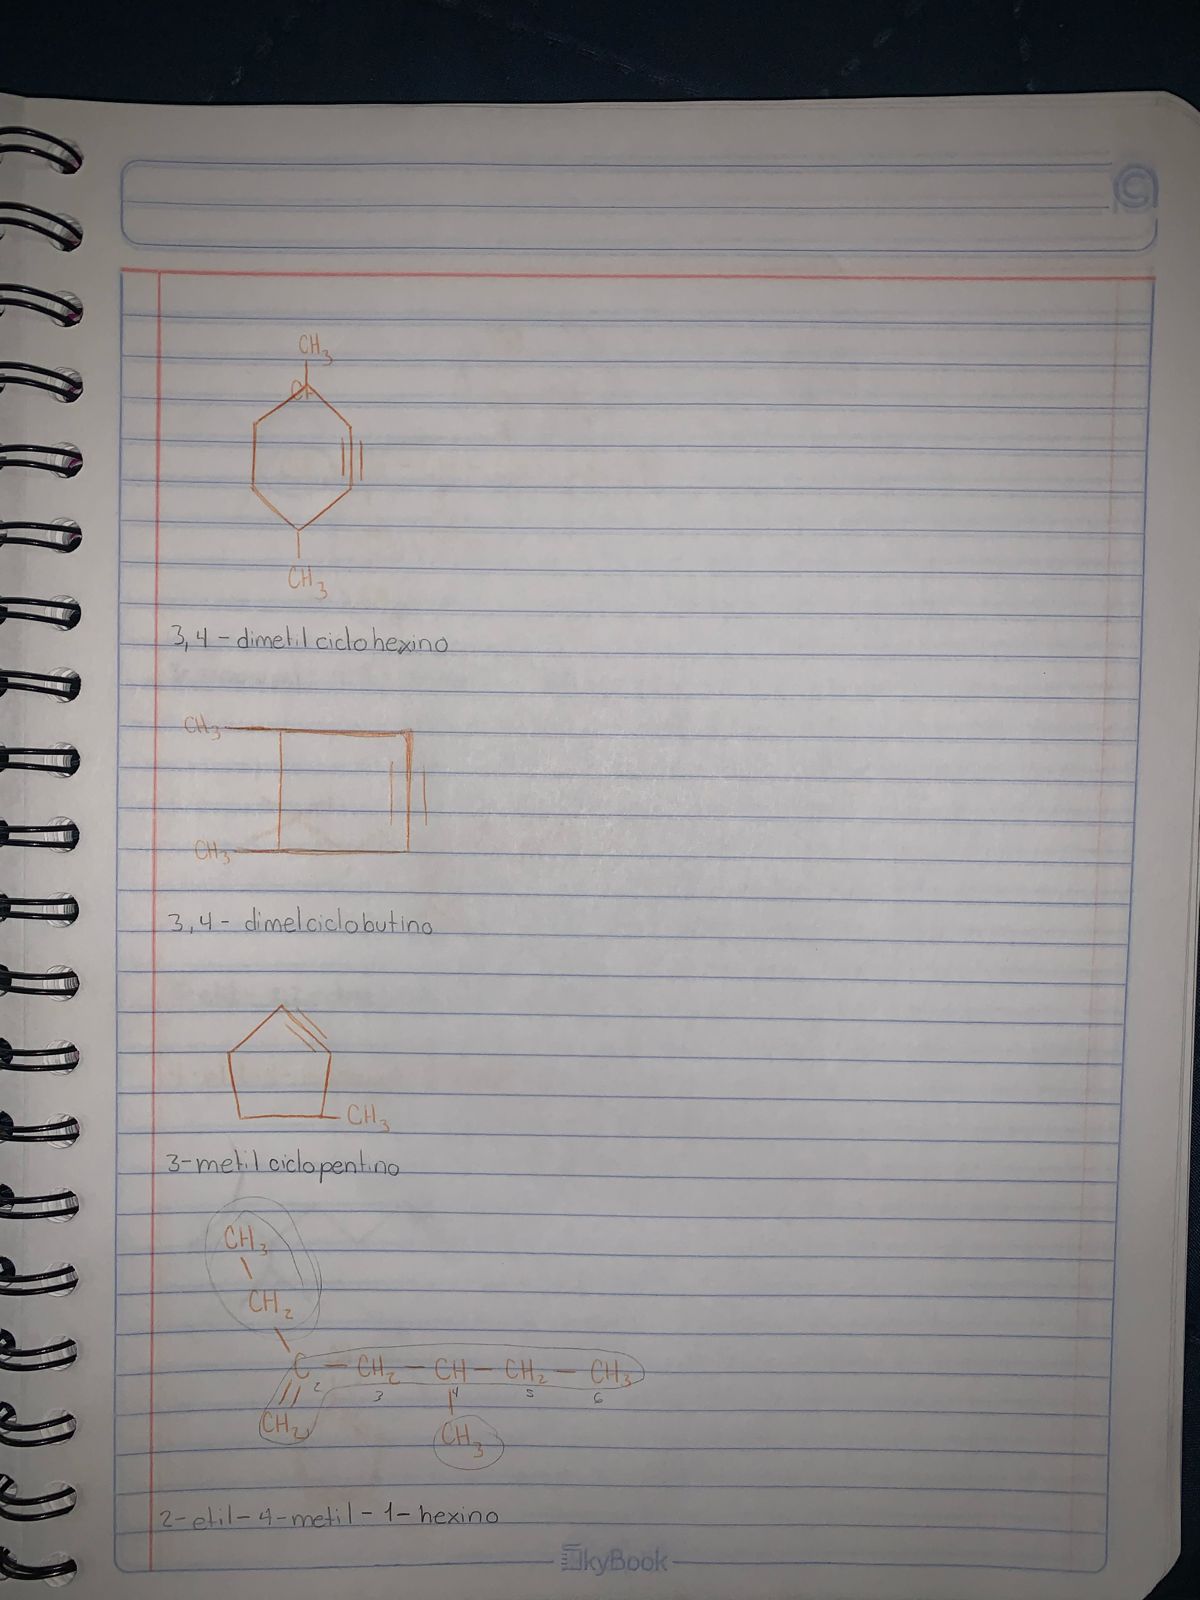 CH3
CH
CH3
3,4-dimetilciclohexino
CH3
CH3
3,4-dimelciclobutino
CH3
3-metilciclopentino
CH3
CH2
C - CH2 - CH - CH2 - CH3
2 3 4 5 6
CH2
CH3
2-etil-4-metil-1-hexino
SkyBook